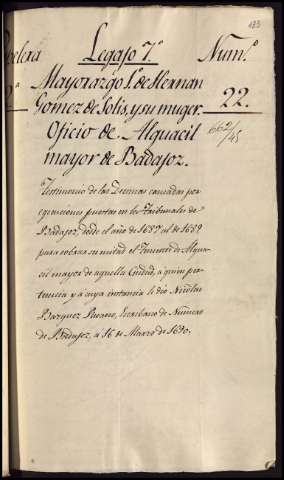 133
Legajo 7.º Num.º
Mayorazgo 1.º de Hernan
Gomez de Solis, y su muger. 22.
Oficio de Alguacil 662/45
mayor de Badajoz.
Testimonio de las Decimas causadas por
egecuciones puestas en los Tribunales de
Badajoz, desde el año de 1687 al de 1689
para cobrar su mitad el Teniente de Algua-
cil mayor de aquella Ciudad, a quien per-
tenecia, y a cuya instancia le dio Nicolas
Bazquez Romero, Escribano de Numero
de Badajoz, a 16 de Marzo de 1690.